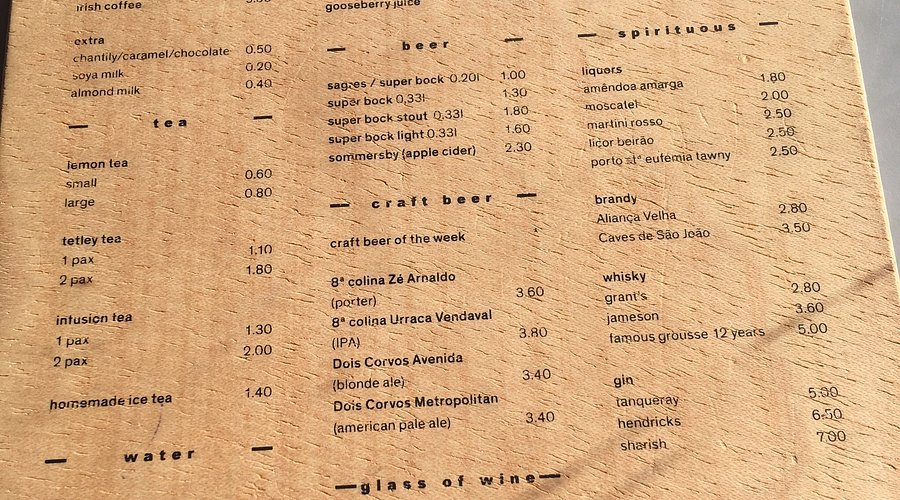 irish coffee
extra
chantily/caramel/chocolate 0.50
soya milk 0.20
almond milk 0.40
tea
lemon tea
small 0.60
large 0.80
tetley tea
1 pax 1.10
2 pax 1.80
infusion tea
1 pax 1.30
2 pax 2.00
homemade ice tea 1.40
water
gooseberry juice
beer
sagres / super bock 0.20l 1.00
super bock 0,33l 1.30
super bock stout 0,33l 1.80
super bock light 0.33l 1.60
sommersby (apple cider) 2.30
craft beer
craft beer of the week
8ª colina Zé Arnaldo
(porter) 3.60
8ª colina Urraca Vendaval
(IPA) 3.80
Dois Corvos Avenida
(blonde ale) 3.40
Dois Corvos Metropolitan
(american pale ale) 3.40
glass of wine
spirituous
liquors
amêndoa amarga 1.80
moscatel 2.00
martini rosso 2.50
licor beirão 2.50
porto stª eufémia tawny 2.50
brandy
Aliança Velha 2.80
Caves de São João 3.50
whisky
grant's 2.80
jameson 3.60
famous grousse 12 years 5.00
gin
tanqueray 5.00
hendricks 6.50
sharish 7.00